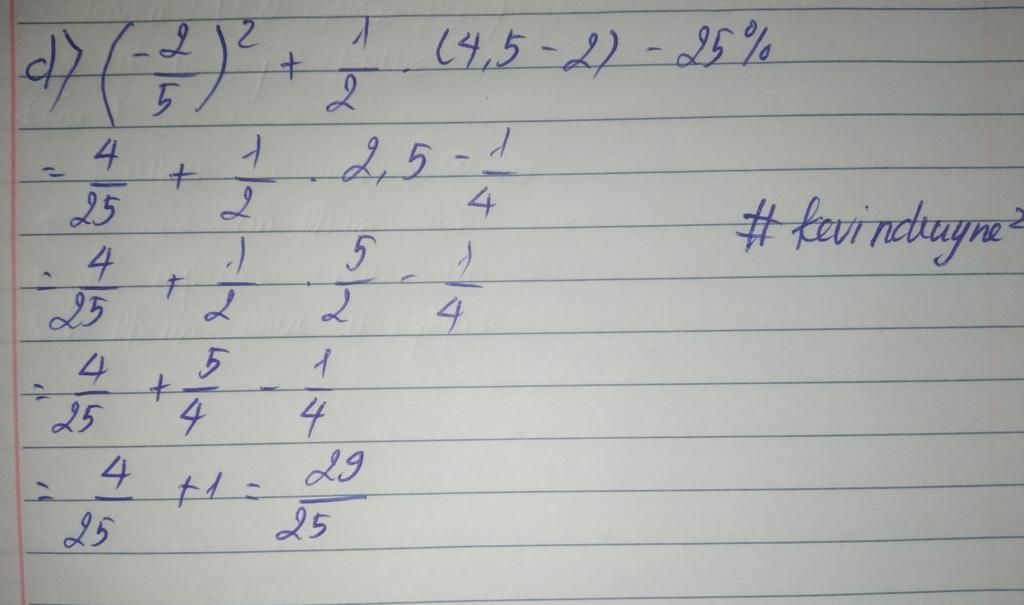 d) (-2/5)² + 1/2 . (4,5 - 2) - 25%
= 4/25 + 1/2 . 2,5 - 1/4
# kevinduyne²
= 4/25 + 1/2 . 5/2 - 1/4
= 4/25 + 5/4 - 1/4
= 4/25 + 1 = 29/25